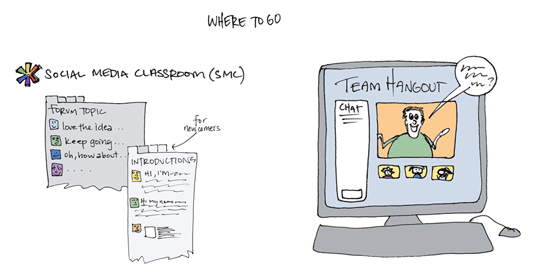 WHERE TO GO
SOCIAL MEDIA CLASSROOM (SMC)
FORUM TOPIC
love the idea...
keep going...
oh, how about...
for
newcomers
INTRODUCTIONS
Hi, I'm
Hi my name
TEAM HANGOUT
CHAT